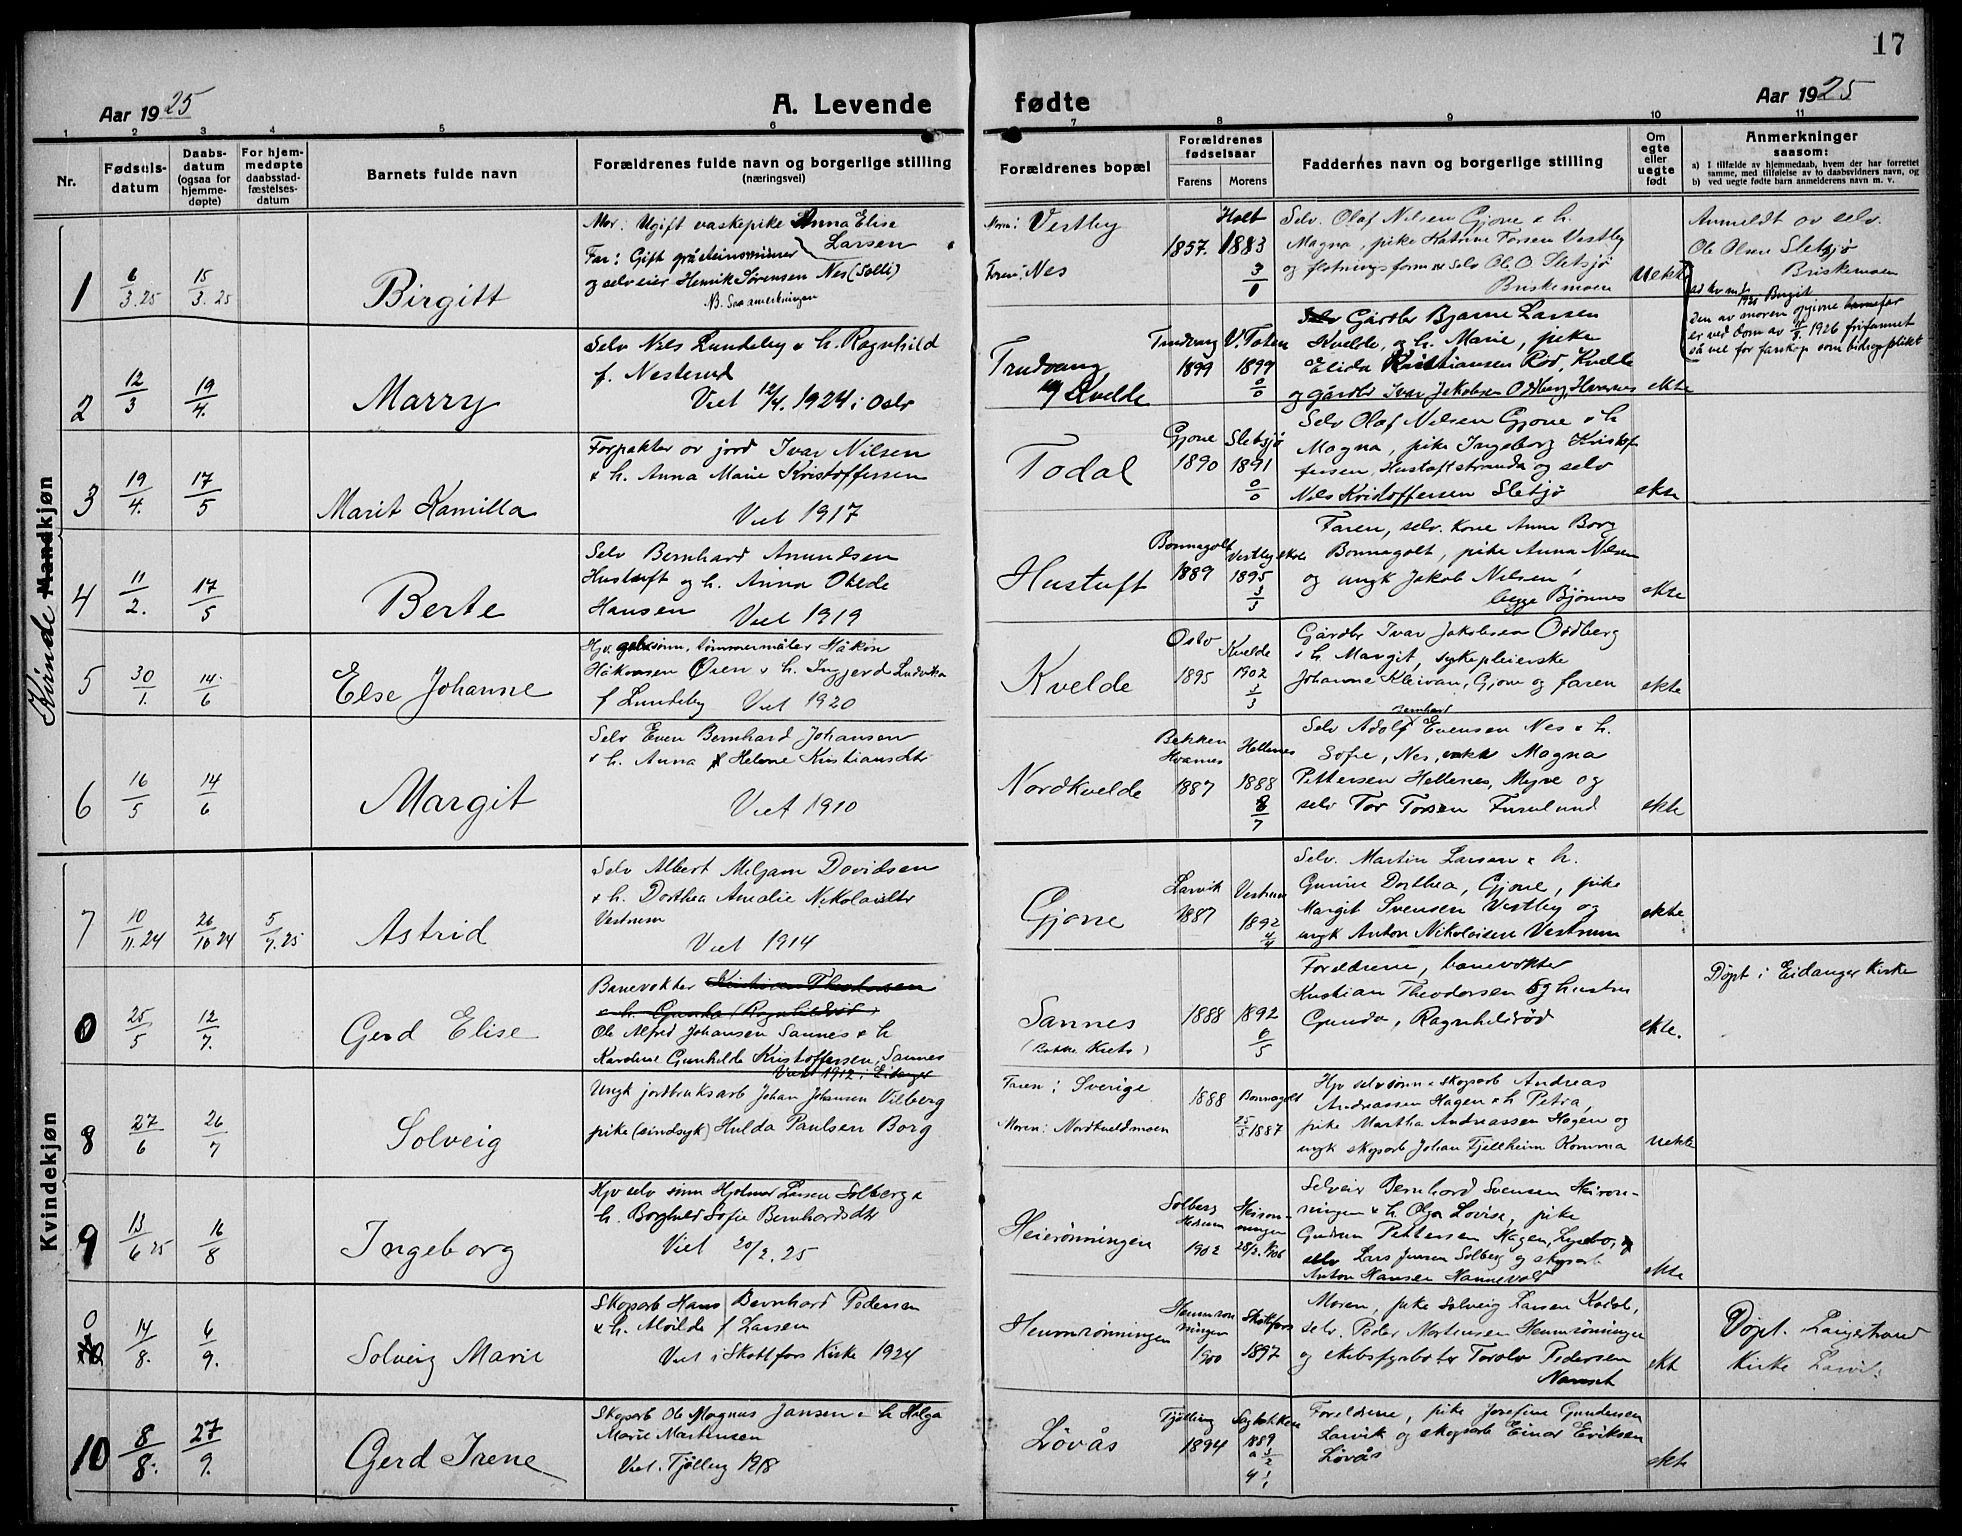 17
Aar 1925
A. Levende
fødte
Aar 1925
1 2 3 4 5 6 7 8 9 10 11
Nr.
Fødsels-
datum
Daabs-
datum
(ogsaa for
hjemme-
døpte)
For hjem-
medøpte
daabsstad-
fæstelses-
datum
Barnets fulde navn
Forældrenes fulde navn og borgerlige stilling
(næringsvei)
Forældrenes bopæl
Forældrenes
fødselsaar
Farens. Morens.
Faddernes navn og borgerlige stilling
Om
egte
eller
uegte
født
Anmerkninger
saasom:
a) I tilfælde av hjemmedaab, hvem der har forrettet
samme, med tilføielse av to daabsvidners navn, og
b) ved uegte fødte barn anmelderens navn m. v.
Kvinde Mandkjøn
1
6/3.25
15/3.25
Birgitt
Mor: Ugift vaskepike Anna Elise
Larsen
Far: Gift gråsteinsminer
og selveier Henrik Sørensen Nes (Solli)
Moren: Vestby
Faren: Nes
1857.
Holt
1883
3/0
Selv. Olaf Nilsen Gjone & h.
Magna, pike Katrine Torsen Vestby
og fløtningsform selv Ole O Sletsjø
Briskemoen
Uekte
Anmeldt av selv.
Ole Olsen Sletsjø
Briskemoen
Den av moren opgivne barnefar
er ved dom av 1926 frifunnet
så vel for farskap som bidragsplikt
2
12/3
19/4.
Marry
Selv Nils Lundeby & h. Ragnhild
f. Nesterud
Viet 12/4. 1924 i Oslo
Trudvang
Kvelde
Trudvang
1899
V. Toten
1899
0/0
Gårdbr Bjarne Larsen
Kvelde, og h. Marie, pike
Elida Kristiansen Rød, Kvelde
og gårdbr Ivar Jakobsen Odberg, Hvarnes
ekte
3
19/4.
17/5
Marit Kamilla
Forpakter av jord Ivar Nilsen
& h. Anna Marie Kristoffersen
Viet 1917
Todal
Gjone
1890
Sletsjø
1891
0/0
Selv Olaf Nilsen Gjone & h
Magna, pike Ingeborg Kristof
fersen, Hustuftstranda og selv
Nils Kristoffersen Sletsjø
ekte
4
11/2.
17/5
Berte
Selv Bernhard Amundsen
Hustuft og h. Anna Otelde
Hansen
Viet 1919
Hustuft
Bonnagolt
1889
Vestby skole
1895
3/3
Faren, selv. kone Anna Borg
Bonnagolt, pike Anna Nilsen
og ungk Jakob Nilsen,
begge Bjønnes
ekte
5
30/1.
14/6
Else Johanne
Håkon
Håkonsen Øien & h. Ingjerd Ludvikka
f Lundeby Viet 1920
Kvelde
Oslo
1895
Kvelde
1902
3/3
Gårdbr Ivar Jakobsen Odberg
& h. Margit, sykepleierske
Johanne Kleivan, Gjone og faren
ekte
6
16/5
14/6
Margit
Selv Even Bernhard Johansen
& h. Anna Helene Kristiansdtr
Viet 1910
Nordkvelde
Bekken
Hvarnes
1887
Hellenes
1888
8/7
Bernhard
Selv Adolf Evensen Nes & h.
Sofie, Nes, Magna
Pettersen Hellenes, Myre og
selv Tor Torsen Furulund
ekte
Kvindekjøn
7
10/11.24
26/10 24
5/7.25
Astrid
Selv Albert Melgam Davidsen
& h. Dorthea Amalie Nikolaidtr
Vestrum
Viet 1914
Gjone
Larvik
1887
Vestrum
1892
4/4
Selv. Martin Larsen & h.
Gunine Dorthea, Gjone, pike
Margit Svensen Vestby og
ungk Anton Nikolaisen Vestrum
ekte
0
25/5
12/7.
Gerd Elise
Banevokter Kristian Theodorsen
& h. Gunda (Ragnhildrød)
Ole Alfred Johansen Sannes & h
Karoline Gunhilde Kristoffersen, Sannes
Viet 1912 i Eidanger
Sannes
(Bakke Krets)
1888
1892
6/5
Foreldrene, banevokter
Kristian Theodorsen og hustru
Gunda, Ragnhildrød
ekte.
Døpt i Eidanger Kirke
8
27/6
26/7
Solveig
Ungk jordbruksarb Johan Johansen Vilberg
pike (sindsyk) Hulda Paulsen Borg
Faren: Sverige
Moren: Nordkveldmoen
1888
Bonnagolt
25/5 1887
Hjv selv sønn & skogsarb Andreas
Andreassen Hagen & h Petra,
pike Martha Andreassen Hagen og
ungk skogsarb Johan Fjellheim Komma
uekte
9
13/6 25
16/8
Ingeborg
Hjv selv sønn Hjalmar Larsen Solberg &
h. Borghild Sofie Bernhardsdtr
Viet 20/2. 25
Heierønningen
Solberg
Hedrum
1902
Heierøn-
ningen
28/2.1906
Selveier Bernhard Svensen Heierøn-
ningen & h. Olga Lovise, pike
Gudrun Pettersen Hagen, Lysebo, og
selv Lars Jensen Solberg og skogsarb
Anton Hansen Hannevold
ekte
0
14/8.
6/9.
Solveig Marie
Skogsarb Hans Bernhard Pedersen
& h. Alvilde f Larsen
Viet i Skotfos Kirke 1924
Hemmrønningen
Hemmrøn
ningen
1900
Skotfoss
1897
Moren, pike Solveig Larsen Kodal,
selv. Peder Mortensen Hemmrønningen
og skibsfyrbøter Torolv Pedersen
Nanset
ekt
Døpt. Langestrand
Kirke Larvik
10
8/8.
27/9.
Gerd Irene
Skogsarb Ole Magnus Jansen & h Helga
Marie Martinsen
Viet. Tjølling 1918
Løvås
Tjølling
1894
Sagbakken
1889
Foreldrene, pike Josefine Gundersen
Larvik og skogsarb Einar Eriksen
Løvås
ekte